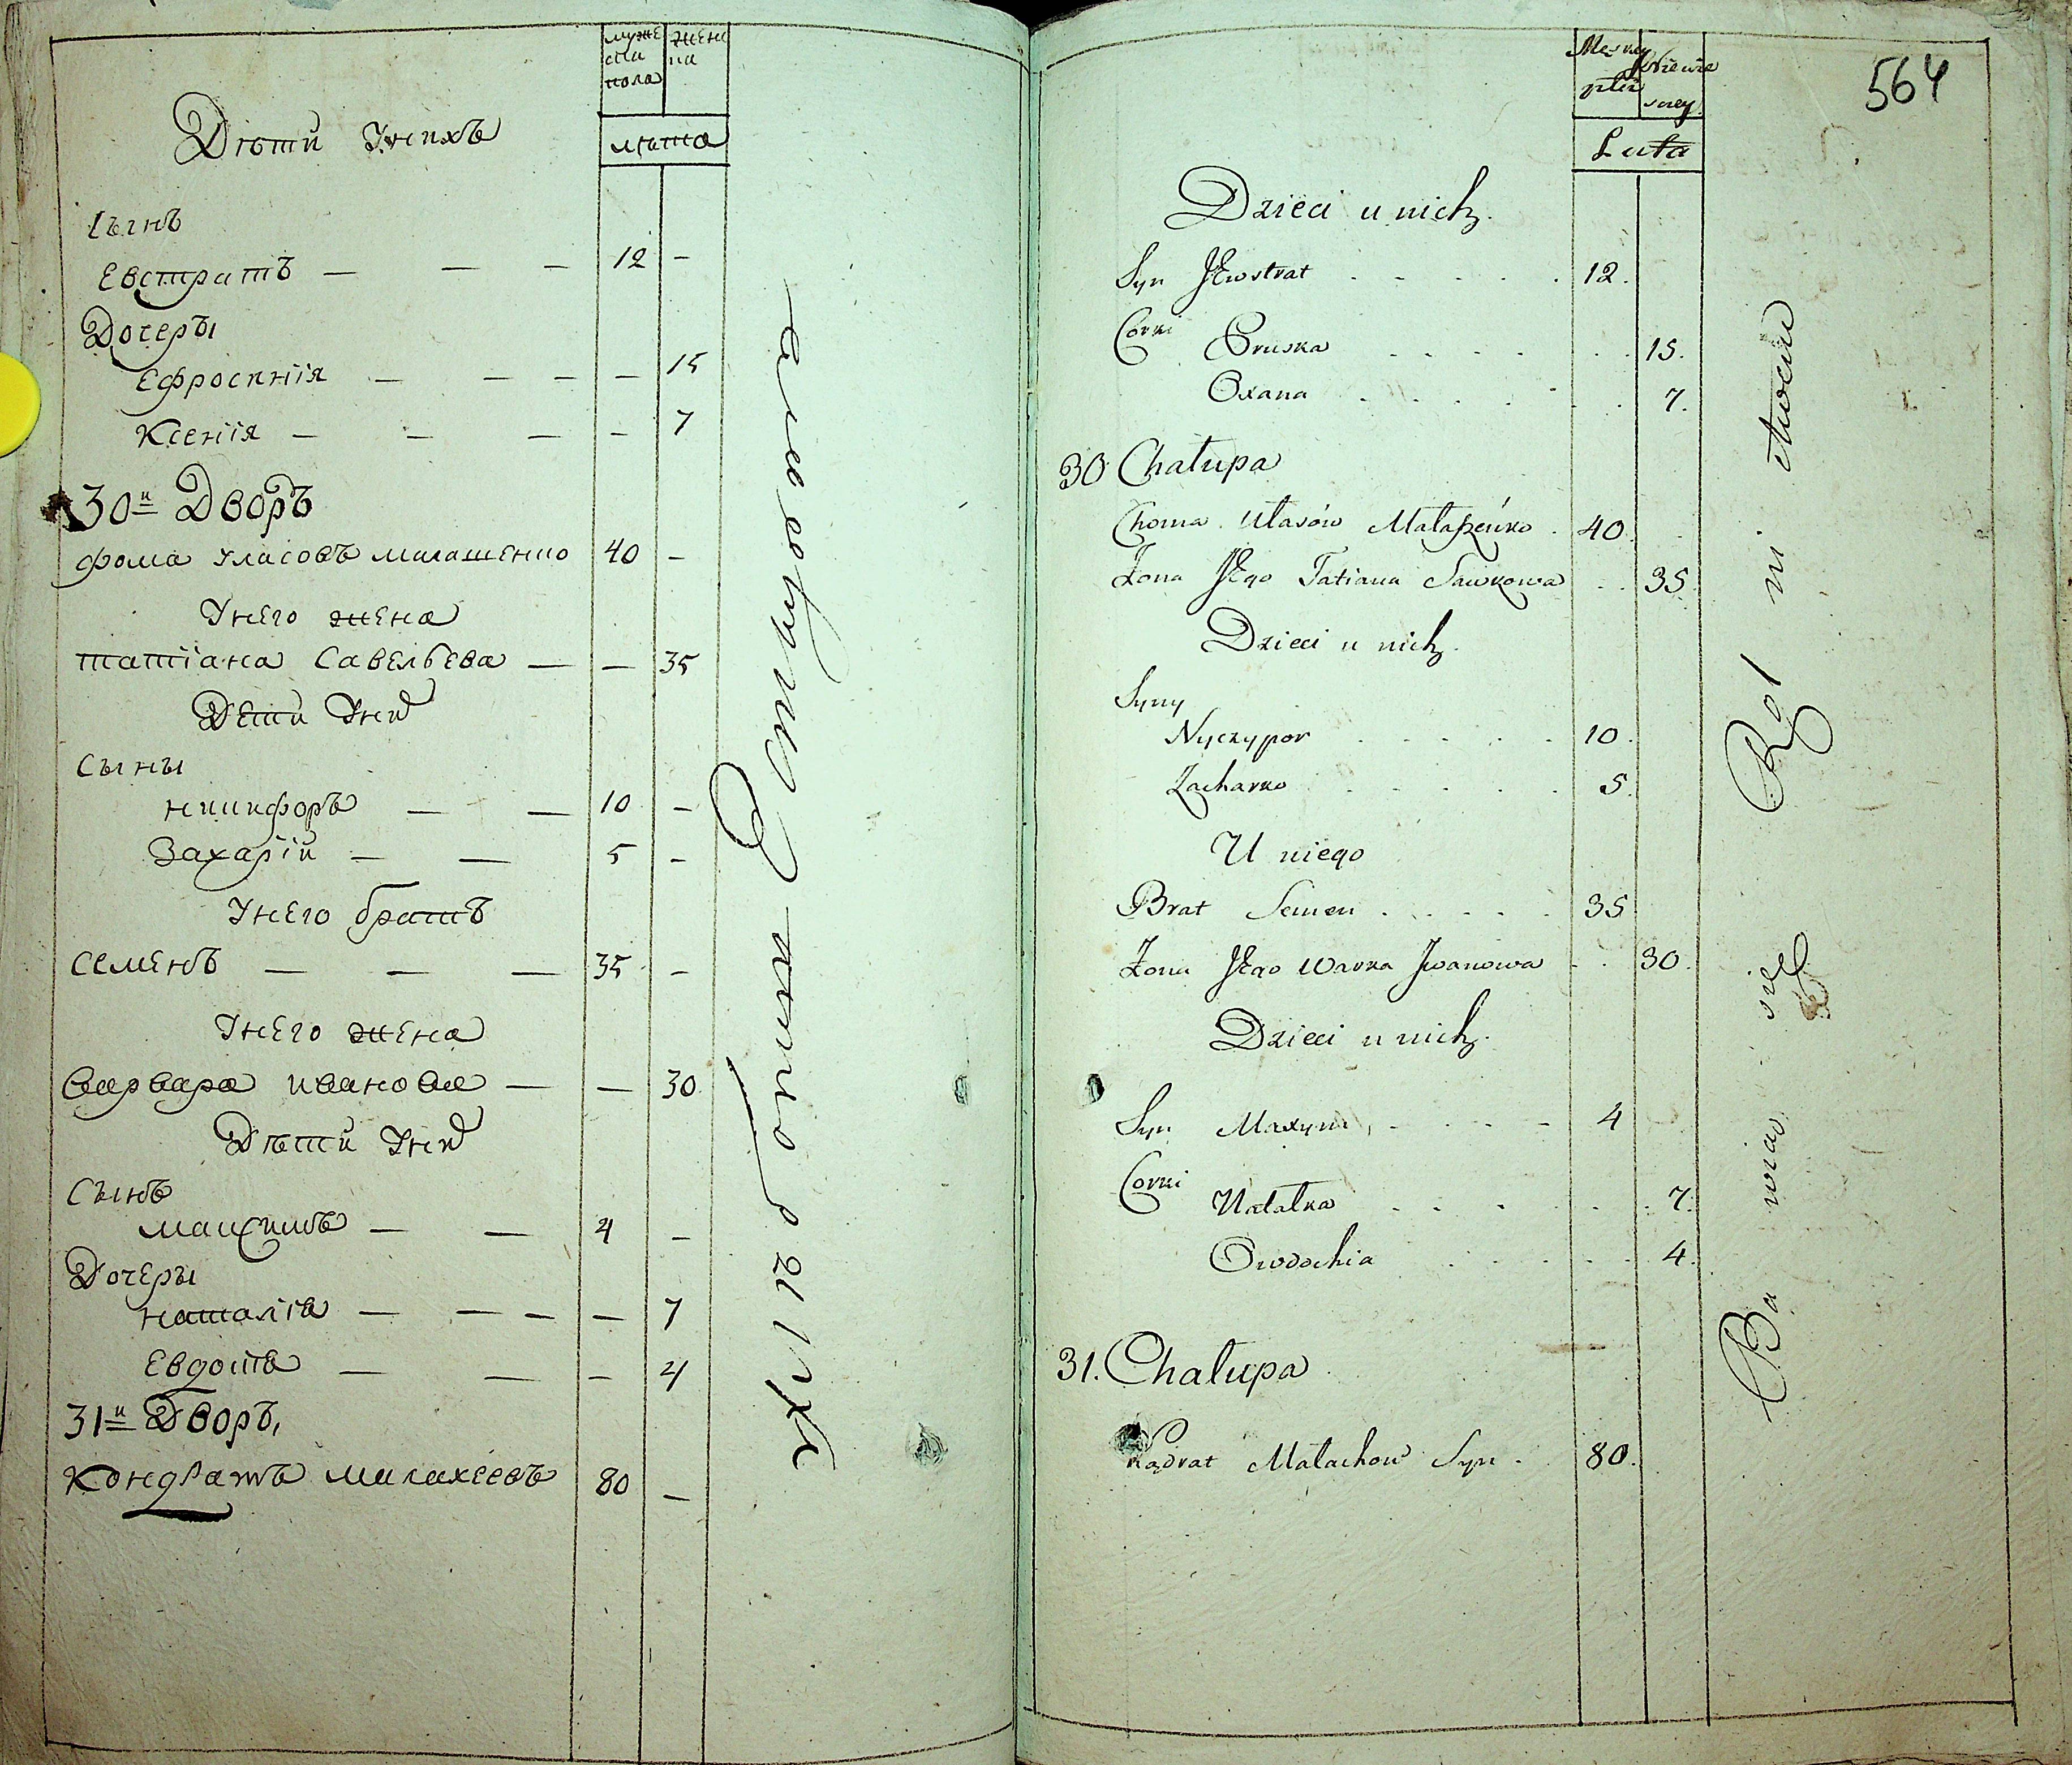 мужеска пола
женска
лѣта
Дѣти Унихъ
Сынъ
Евстратъ — — — 12 —
Дочеры
Ефросинїя — — — — 15
Ксенїя — — — — 7
30й Дворъ
Фома Уласовъ малашенко 40 —
Унего жена
татїана Савельева — — 35
Дети Них
Сыны
никифоръ — — 10 —
Захарїй — — 5 —
Унего братъ
Семенъ — — — 35 —
Унего жена
варвара иванова — — 30
Дѣти Них
Сынъ
маѯимъ — — 4 —
Дочеры
наталїа — — — — 7
Евдокїа — — — 4
31й Дворъ,
Кондратъ малахеевъ 80 —
564
Męzkiey płci
Lata
Dzieci u nich.
Syn JEwstrat . . . . . 12.
Corki Pruska . . . . . . 15.
Oxana . . . . . . 7.
30 Chałupa
Choma Ułasów Małaszeńko . 40.
Żona JEgo Tatiana Sawkowa . . 35
Dzieci u nich.
Syny
Nyczypor . . . . . 10.
Zacharko . . . . . 5.
U niego
Brat Semen . . . . . 35
Żona JEgo Warka Jwanowa . . 30.
Dzieci u nich.
Syn Maxym . - . - - 4
Corki Natalka . . . . . . 7.
Owdochia . . . . . 4.
31. Chałupa
Kądrat Małachow Syn . 80.